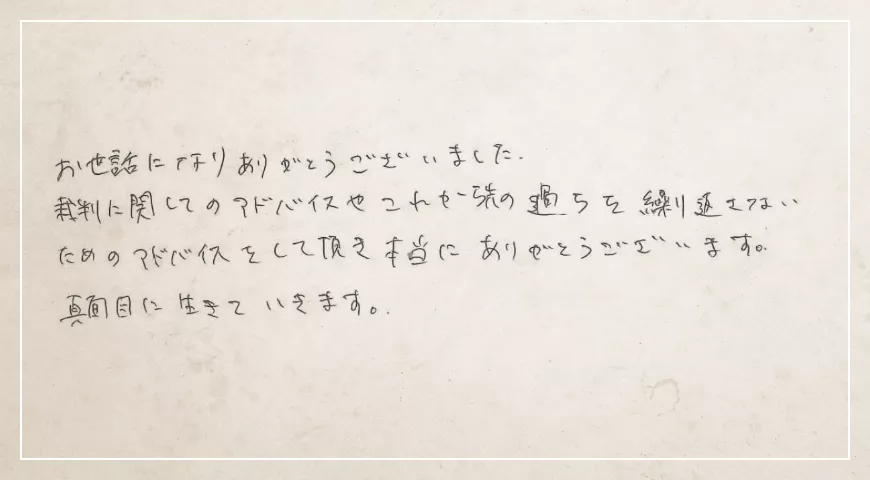 お世話になりありがとうございました.
裁判に関してのアドバイスやこれから先の過ちを繰り返さない
ためのアドバイスをして頂き本当にありがとうございます。
真面目に生きていきます。